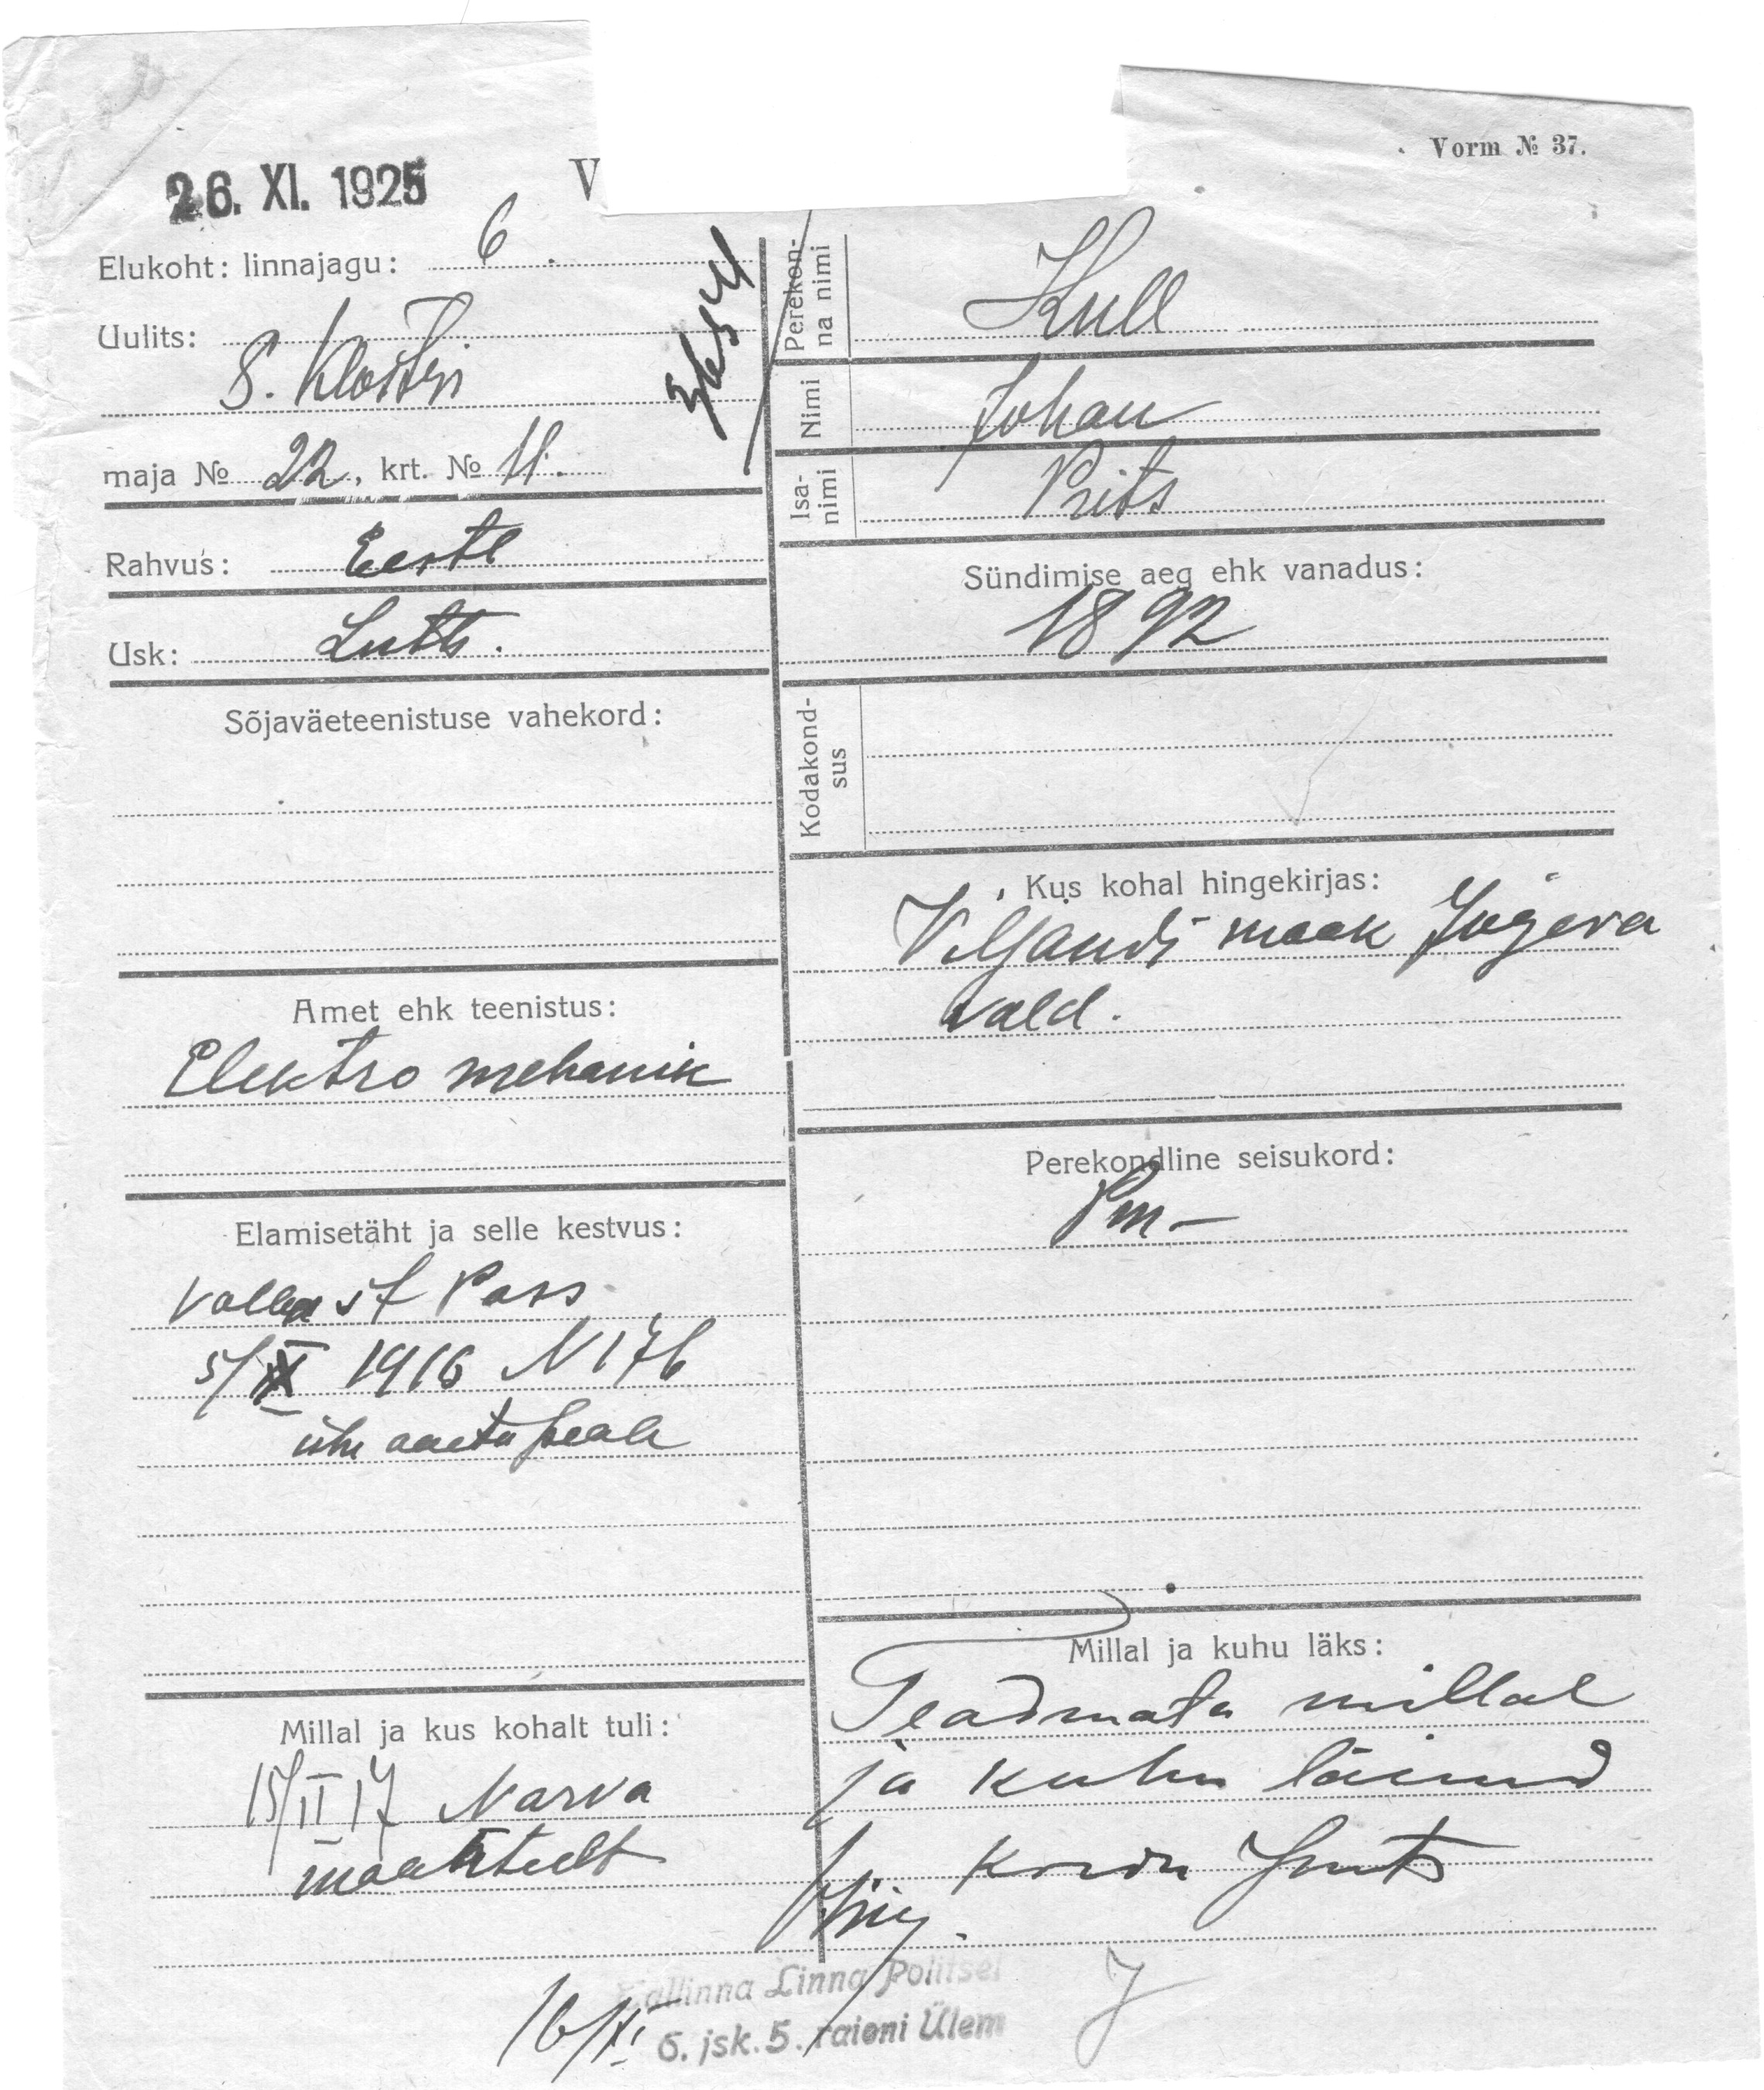 Vorm № 37.
26. XI. 1925
V
Elukoht: linnajagu: 6.
Uulits:
S. Klostri
maja № 22, krt. № 11.
Rahvus: Eestl
Usk: Luth.
Sõjaväeteenistuse vahekord:
Amet ehk teenistus:
Elektro mehanik
Elamisetäht ja selle kestvus:
Vallast Pass
5/IX 1916 N 176
ühe aasta peale
Millal ja kus kohalt tuli:
15/II 17 Narva
maanteelt
Perekon-
na nimi
Kull
Nimi
Johan
Isa-
nimi
Prits
Sündimise aeg ehk vanadus:
1892
Kodakond-
sus
Kus kohal hingekirjas:
Viljandi maak Jõgeva
vald.
Perekondline seisukord:
Pm –
Millal ja kuhu läks:
Teadmata millal
ja kuhu läinud
Tallinna Linna Politsei
6. jsk. 5. raioni Ülem
16/XI